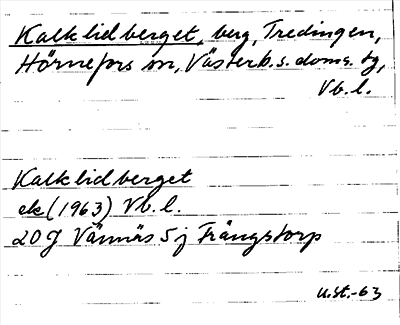 Kalklidberget, berg, Tredingen,
Hörnefors sn, Västerb.s. doms. tg,
Vb.l.
Kalklidberget
ek (1963) Vb.l.
20 J Vännäs 5 j Trängstorp
u.st.-63